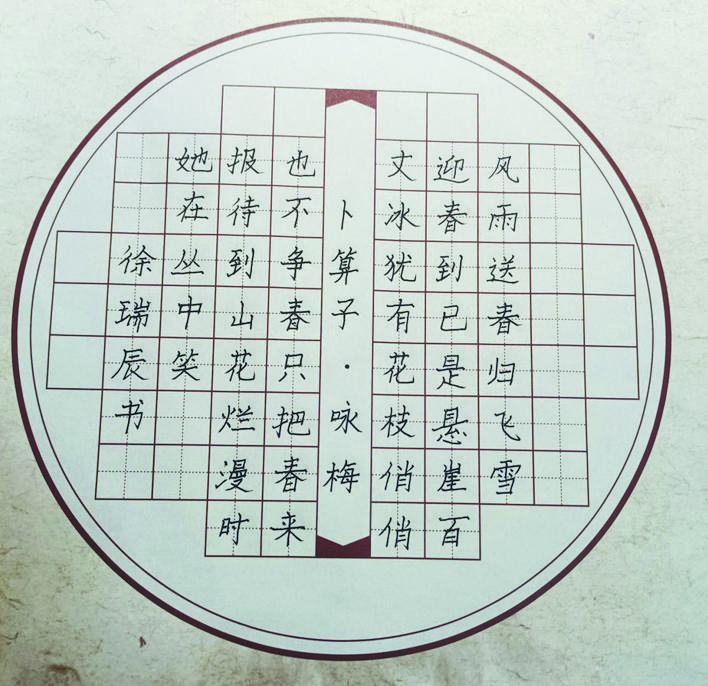 卜算子·咏梅
风雨送春归飞雪
迎春到已是悬崖百
丈冰犹有花枝俏俏
也不争春只把春来
报待到山花烂漫时
她在丛中笑
徐瑞辰书